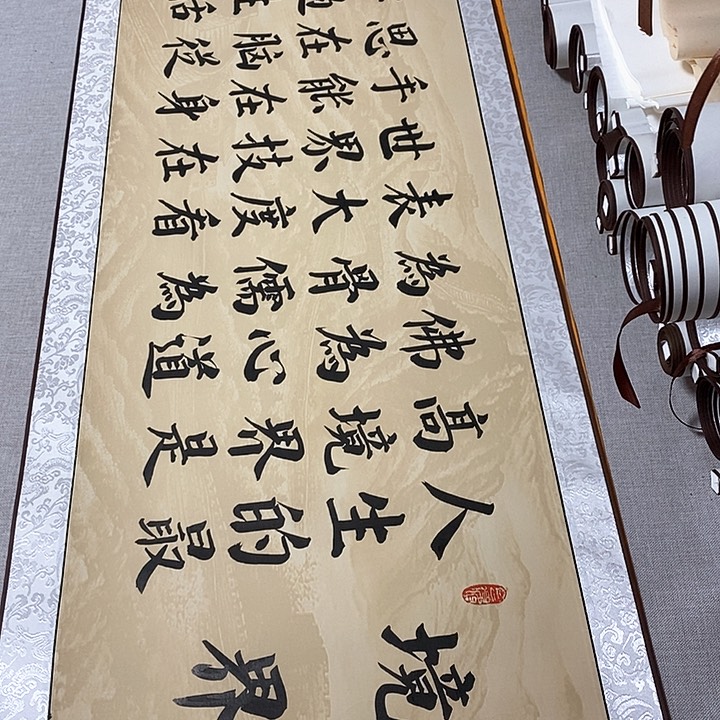 境界
人生的最
高境界是
佛為心道
為骨儒為
表大度看
世界技在
手能在身
思在脑從